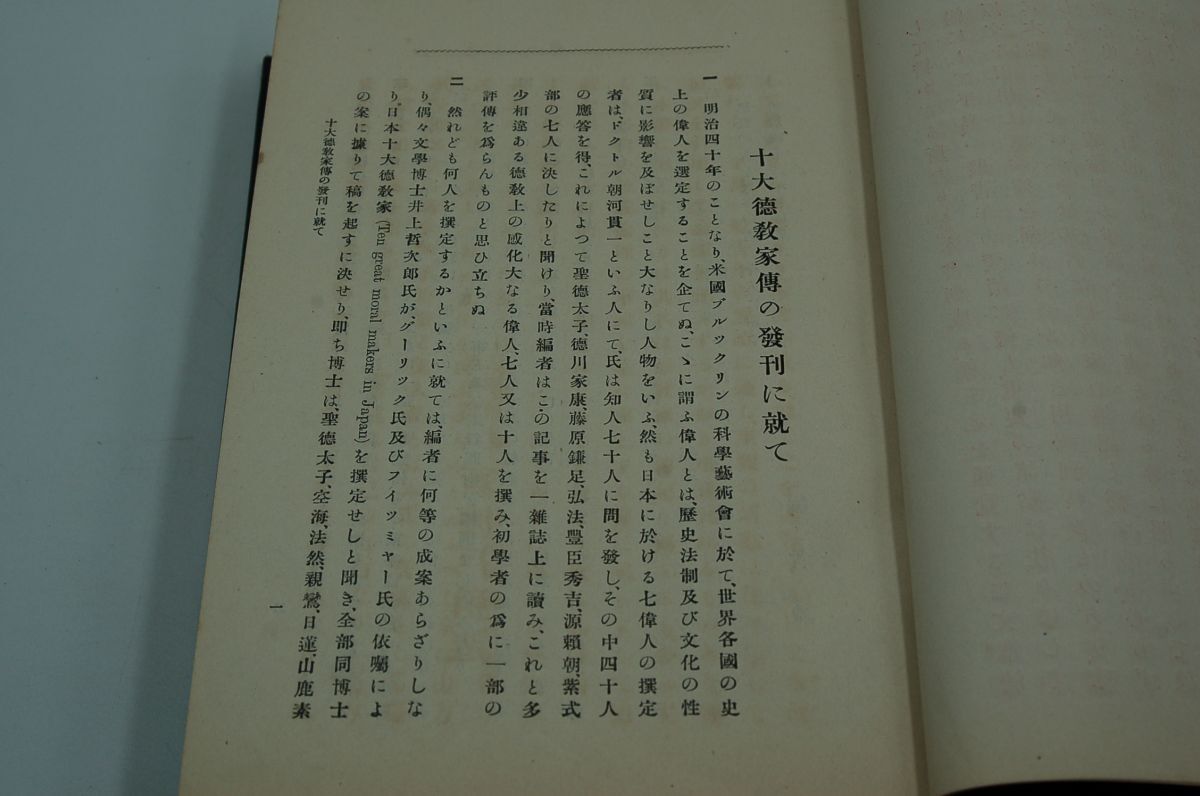 十大德敎家傳の發刊に就て
一 明治四十年のことなり、米國ブルックリンの科學藝術會に於て、世界各國の史
上の偉人を選定することを企てぬ、こゝに謂ふ偉人とは、歷史法制及び文化の性
質に影響を及ぼせしこと大なりし人物をいふ、然も日本に於ける七偉人の撰定
者は、ドクトル朝河貫一といふ人にて、氏は知人七十人に問を發し、その中四十人
の應答を得、これによつて聖德太子、德川家康、藤原鎌足、弘法、豐臣秀吉、源賴朝、紫式
部の七人に決したりと聞けり、當時編者はこの記事を一雜誌上に讀み、これと多
少相違ある德敎上の感化大なる偉人、七人又は十人を撰み、初學者の爲に一部の
評傳を爲らんものと思ひ立ちぬ
二 然れども何人を撰定するかといふに就ては、編者に何等の成案あらざりしな
り、偶々文學博士井上哲次郎氏が、グーリック氏及びフイッミャー氏の依囑によ
り、日本十大德敎家(Ten great moral makers in Japan)を撰定せしと聞き、全部同博士
の案に據りて稿を起すに決せり、卽ち博士は、聖德太子、空海、法然、親鸞、日蓮、山鹿素
十大德敎家傳の發刊に就て
一